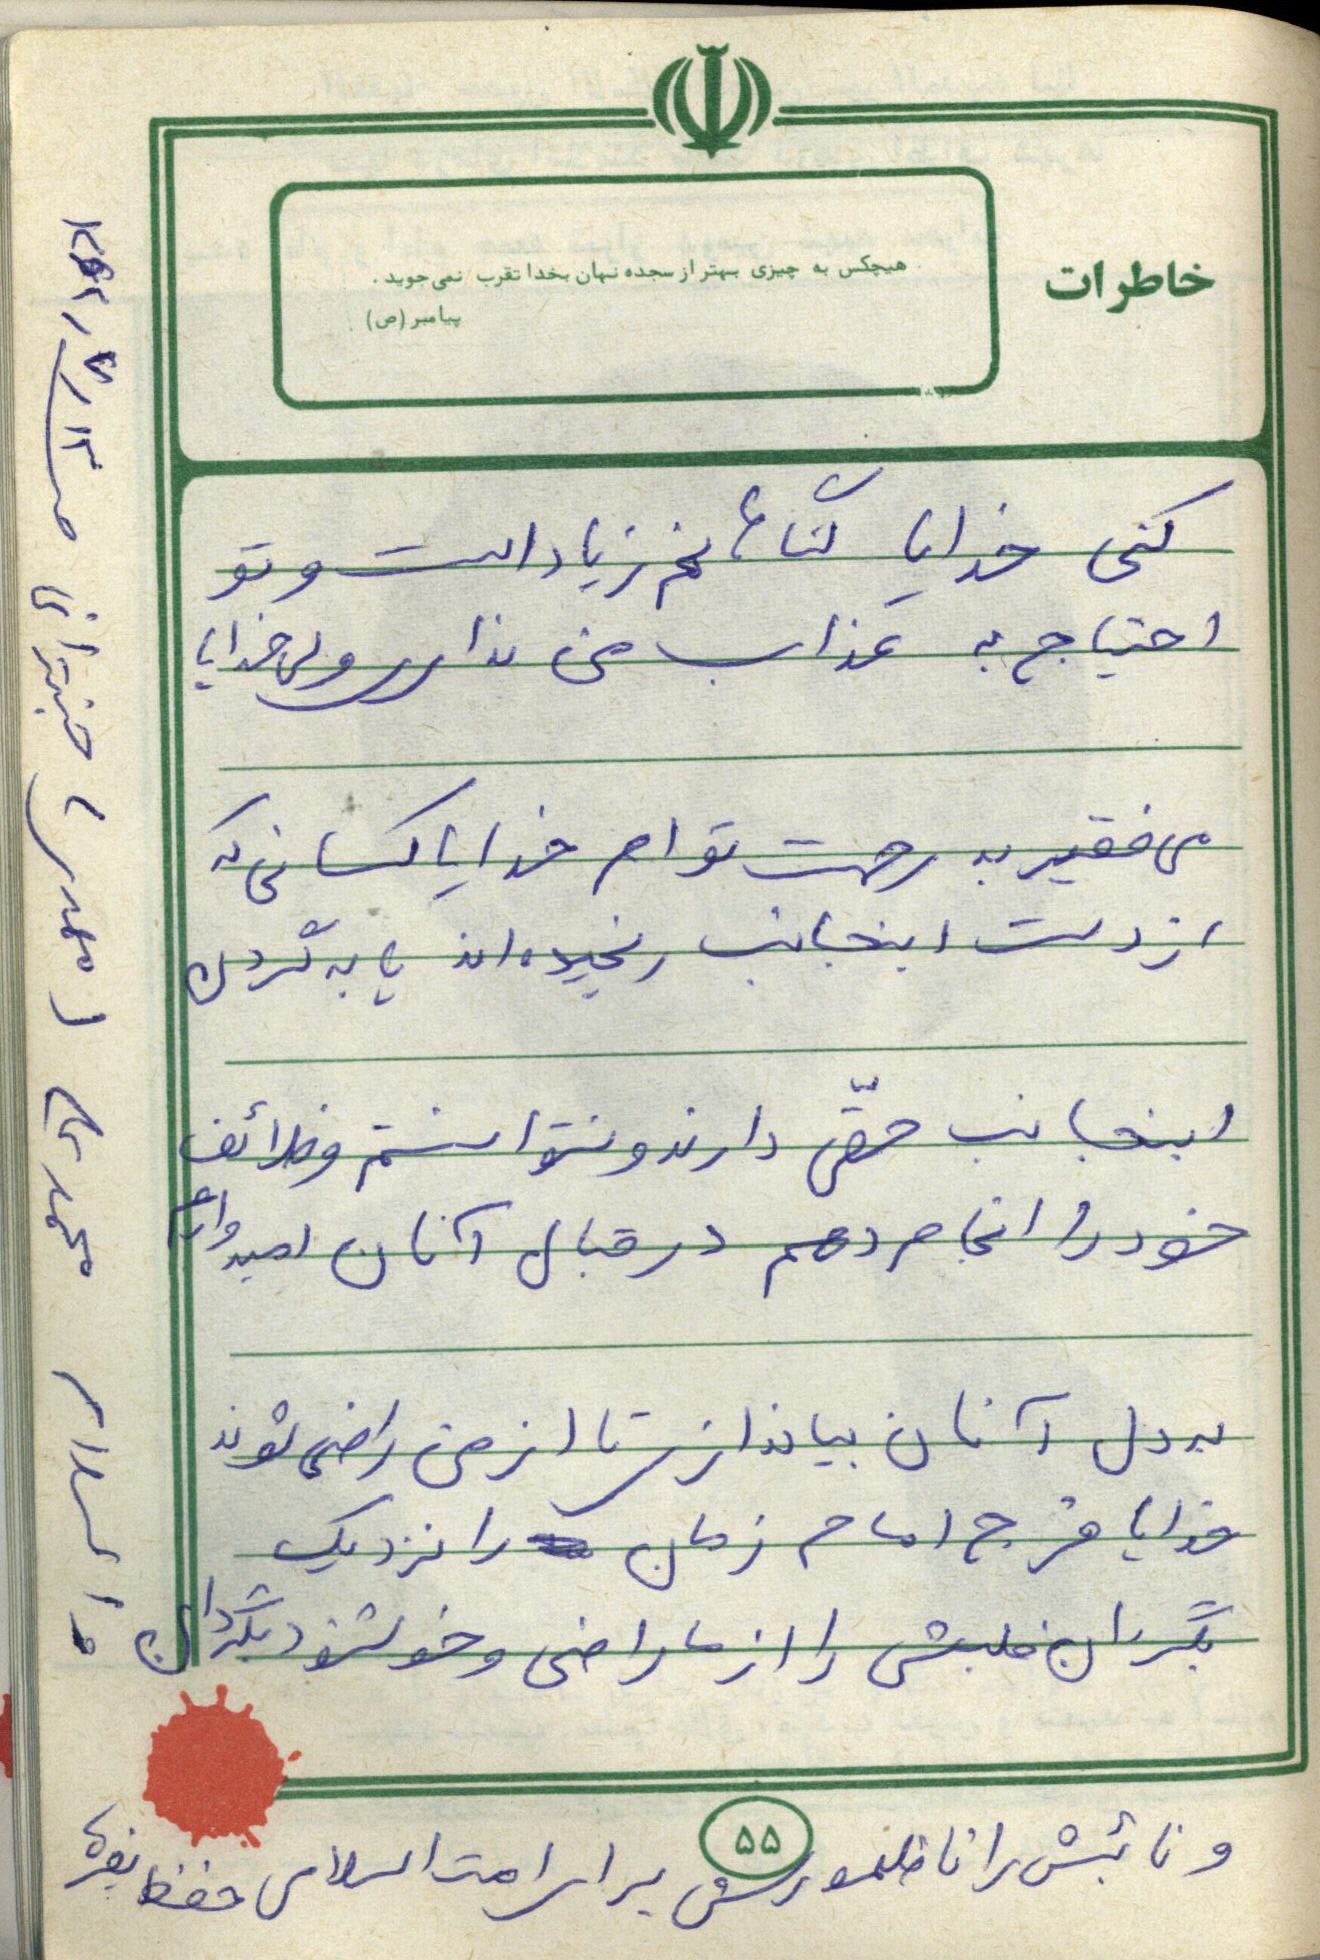 خاطرات
هیچکس به چیزی بهتر از سجده نهان بخدا تقرب نمی‌جوید.
پیامبر (ص)
کنی خدایا گناهانم زیاد است و تو
احتیاج به عذاب من نداری ولی خدایا
من فقیر به رحمت توام خدایا کسانی که
از دست اینجانب رنجیده‌اند یا به گردن
اینجانب حقّی دارند و نتوانستم وظائف
خود را انجام دهم در قبال آنان امیدوارم
به دل آنان بیاندازی تا از من راضی شوند
خدایا فرج امام زمان را نزدیک
بگردان قلبش را از ما راضی و خوشنود بگردان
و نائبش را تا ظهورش برای امت اسلامی حفظ بفرما
۵۵
والسلام محمد تاج (مهدی) جنتیانی